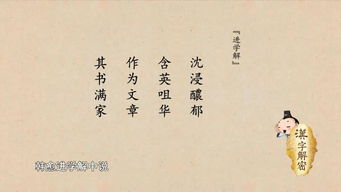 『进学解』
沈浸醲郁
含英咀华
作为文章
其书满家
韩愈进学解中说
漢字解密